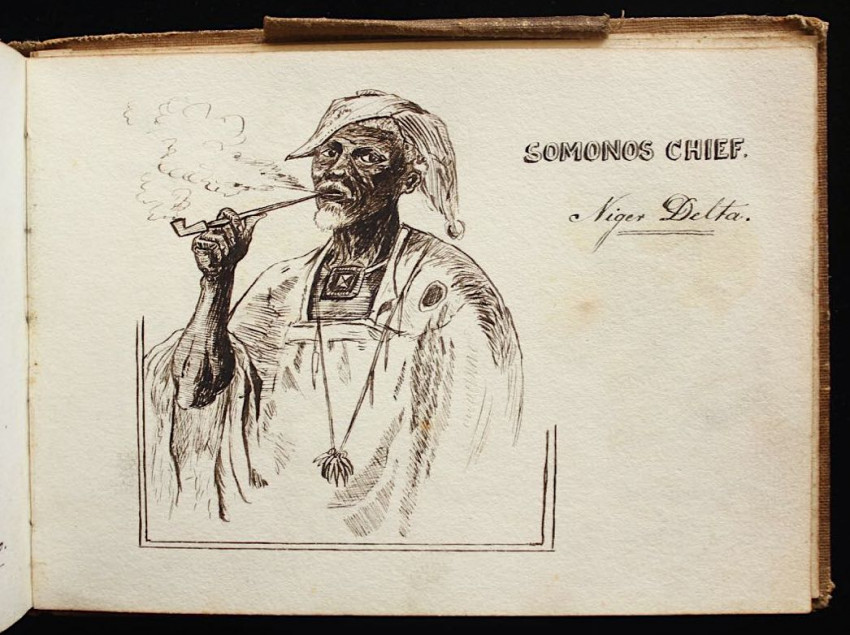 SOMONOS CHIEF.
Niger Delta.